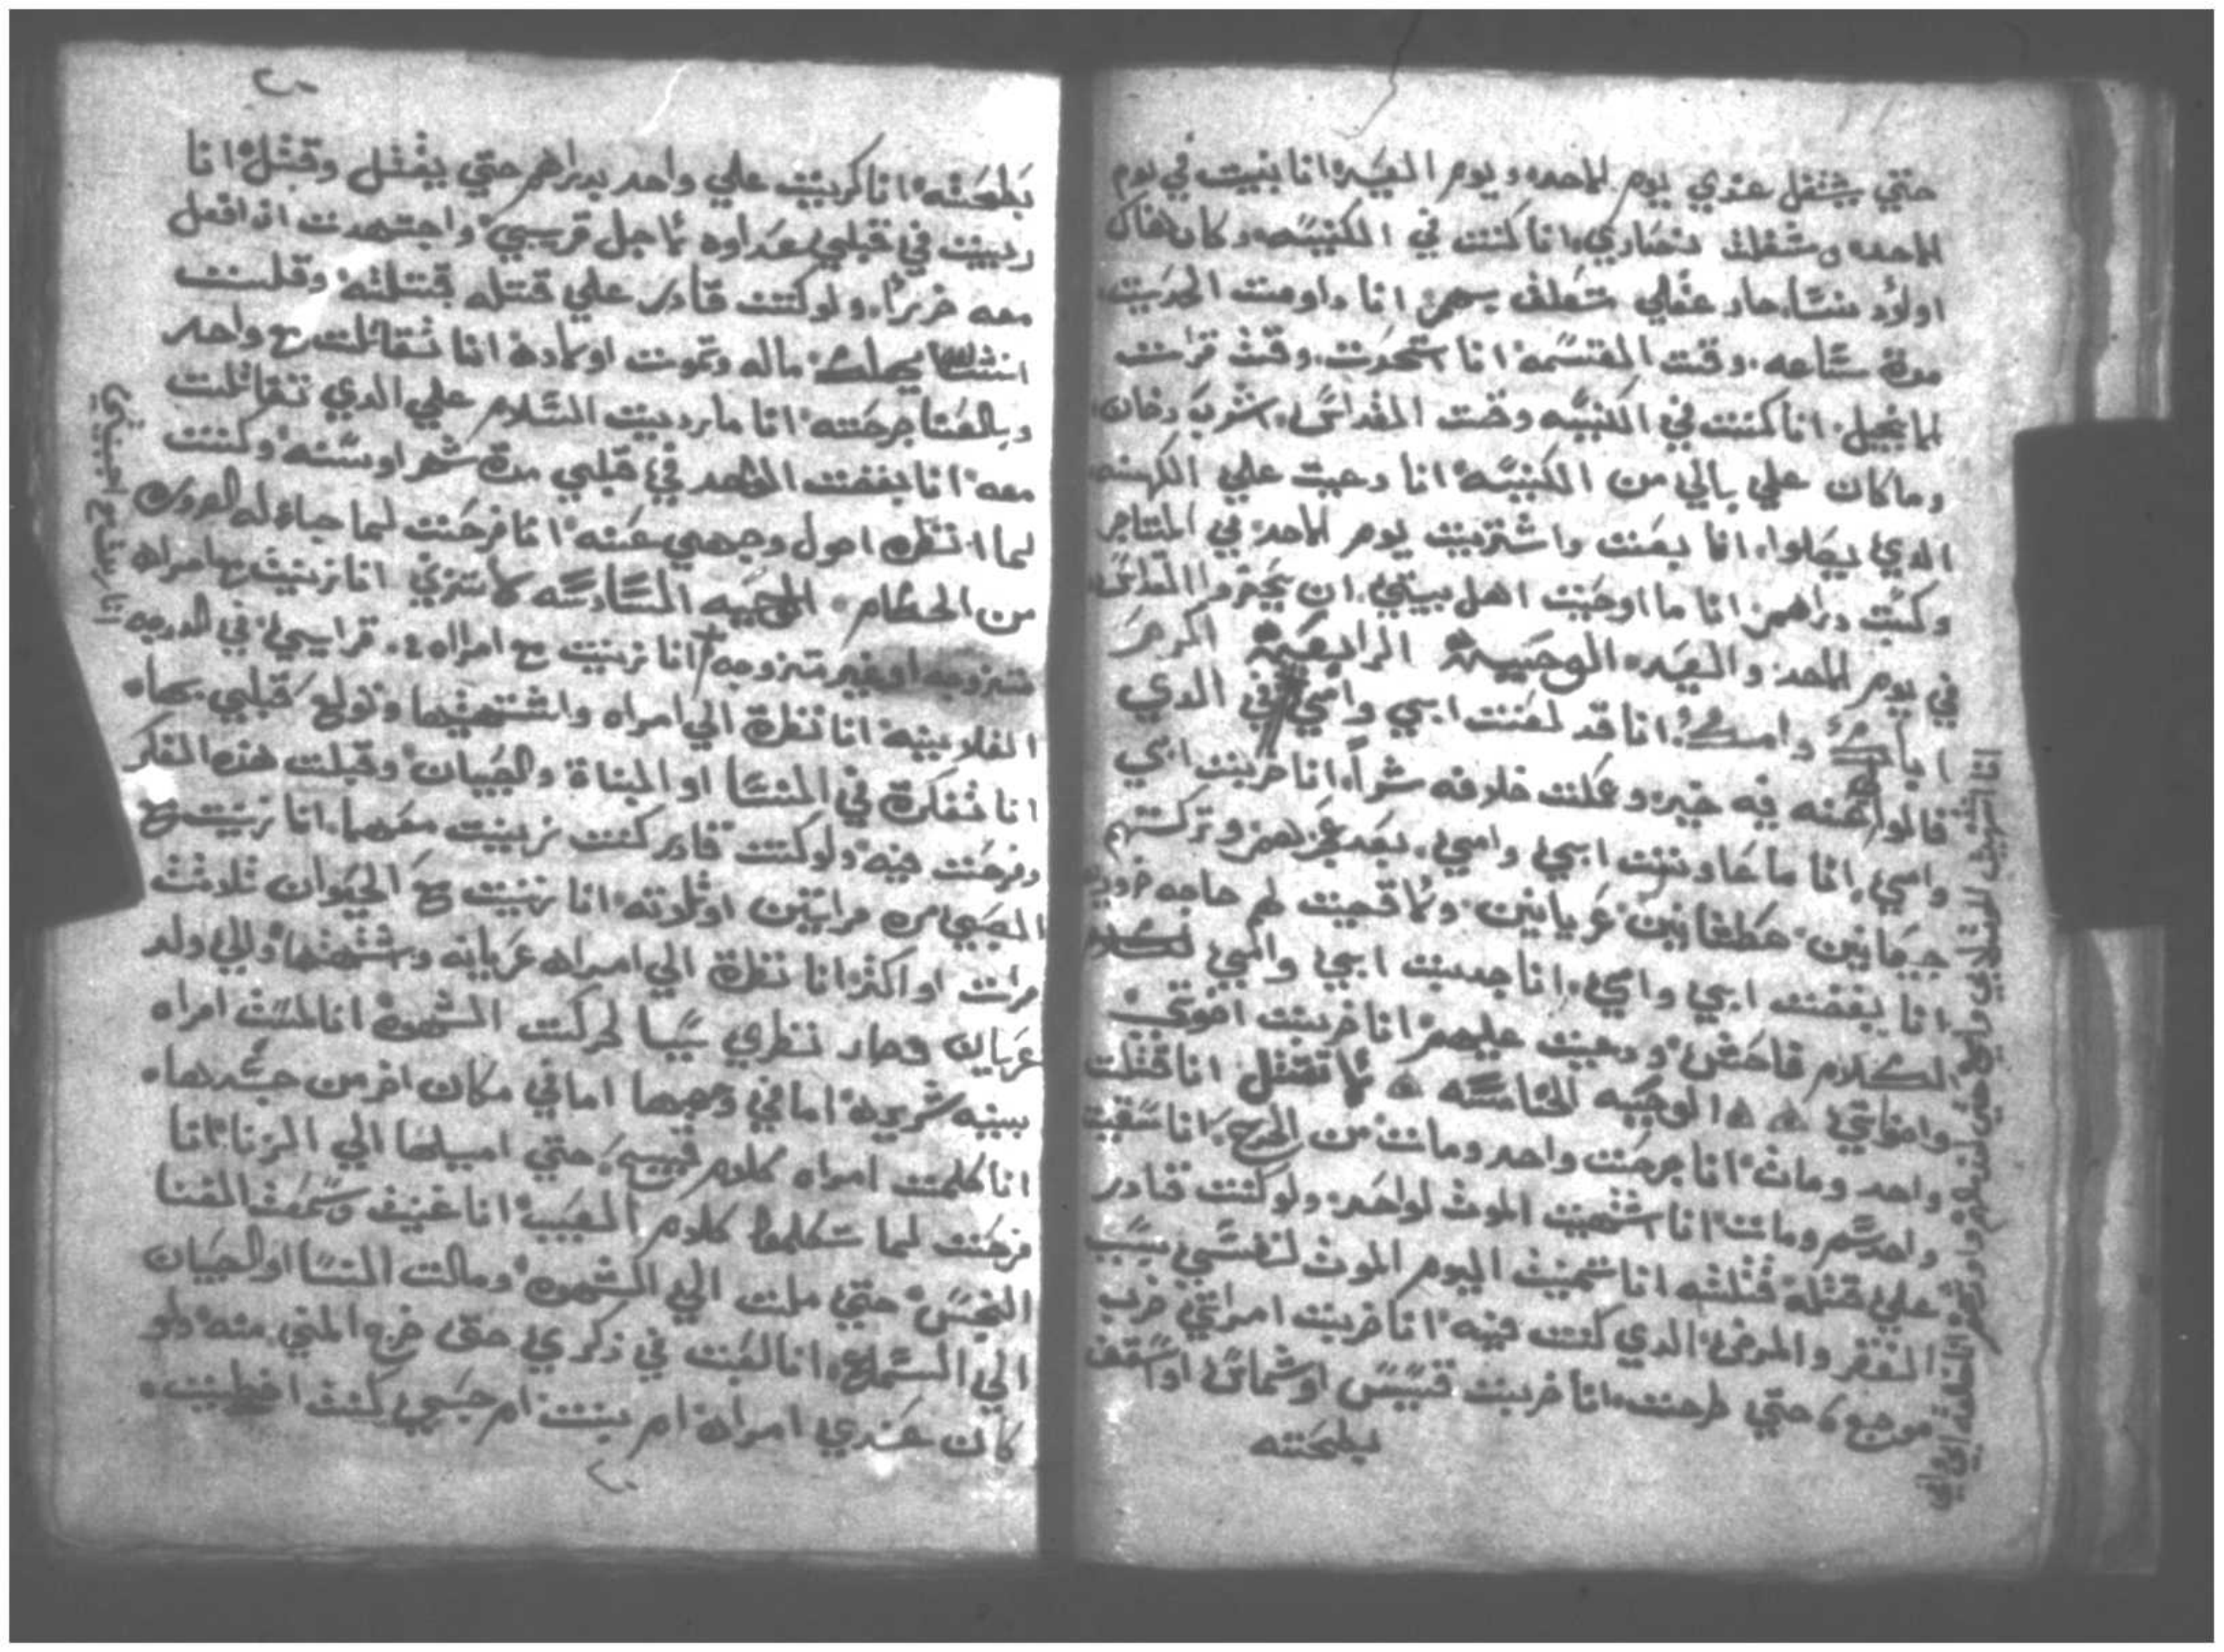 حتي يشتغل عندي يوم الاحد ويوم العيد انا بنيت في يوم
الاحد وشغلت نصاري انا كنت في الكنيسه وكان هناك
اولاد نسا صار عقلي متعلق بهم انا داومت الحديت
مدة ساعه وقت القسمه انا اتحدت وقت قرات
الانجيل انا كنت في الكنيسه وقت القداس شرب دخان
وما كان علي بالي من الكنيسه انا دعيت علي الكهنه
الدي يصلوا انا بعت واشتريت يوم الاحد في المتاجر
وكسبت دراهم انا ما اوصيت اهل بيتي ان يحترموا القداس
في يوم الاحد والعيد الوصية الرابعة اكرم
اباك وامك انا قد لعنت ابي وامي في الدي
قالوا عنه فيه خير وعملت خلافه شراً انا ضربت ابي
وامي انا ما عاونت ابي وامي بعد عجزهم وتركتهم
جيعانين عطشانين عريانين ولا قضيت لهم حاجه ضروريه
انا بغضت ابي وامي انا جدبت ابي وامي لكلام
الكلام فاحش ودعيت عليهم انا ضربت اخوتي
واخواتي الوصيه الخامسه لا تقتل انا قتلت
واحد ومات انا جرحت واحد ومات من الجرح انا سقيت
واحد سم ومات انا اشتهيت الموت لواحد ولو كنت قادر
علي قتله قتلته انا تمنيت اليوم الموت لنفسي بسبب
الفقر والمرض الدي كنت فيه انا ضربت امراتي ضرب
موجع حتي طرحت انا ضربت قسيس او شماس او اسقف
بطحته
بطحته انا كريت علي واحد بدراهم حتي يقتل وقتل انا
ربيت في قلبي عداوه لاجل قريبي واجتهدت ان افعل
معه ضرراً ولو كنت قادر علي قتله قتلته وقلت
انشالله يهلك ماله وتموت اولاده انا تقاتلت مع واحد
وبالعصا جرحته انا ما رديت السلام علي الدي تقاتلت
معه انا بغضت احد في قلبي مدة شهر او سنه وكنت
لما انظره احول وجهي عنه انا فرحت لما جاء له الضرر
من الحكام الوصيه السادسه لا تزني انا زنيت بامراه
متزوجه او غير متزوجه انا زنيت مع امراه قرايبي في الدرجه
الفلانيه انا نظرة الي امراه واشتهيتها وتولع قلبي بها
انا تفكرة في النسا او البناة والصبيان وقبلت هذه الفكر
وفرحت فيه ولو كنت قادر كنت زنيت معهم انا زنيت مع
الصبيان مراتين او تلوته انا زنيت مع الحيوان تلاتت
مرات او اكتر انا نظرة الي امراه عريانه واشتهيتها والي ولد
عريان وصار نظري سببا لحركت الشهوة انا لمست امراه
بنيه شريره اما في وجهها اما في مكان اخر من جسدها
انا كلمت امراه كلام قبيح حتي اميلها الي الزنا انا
فرحت لما تكلموا كلام العيب انا غنيت وسمعت الغنا
النجس حتي ملت الي الشهوه ومالت النسا او الصبيان
الي السماع انا لعبت في ذكري حتي خرج المني منه ولو
كان عندي امراة ام بنت ام صبي كنت اخطيت